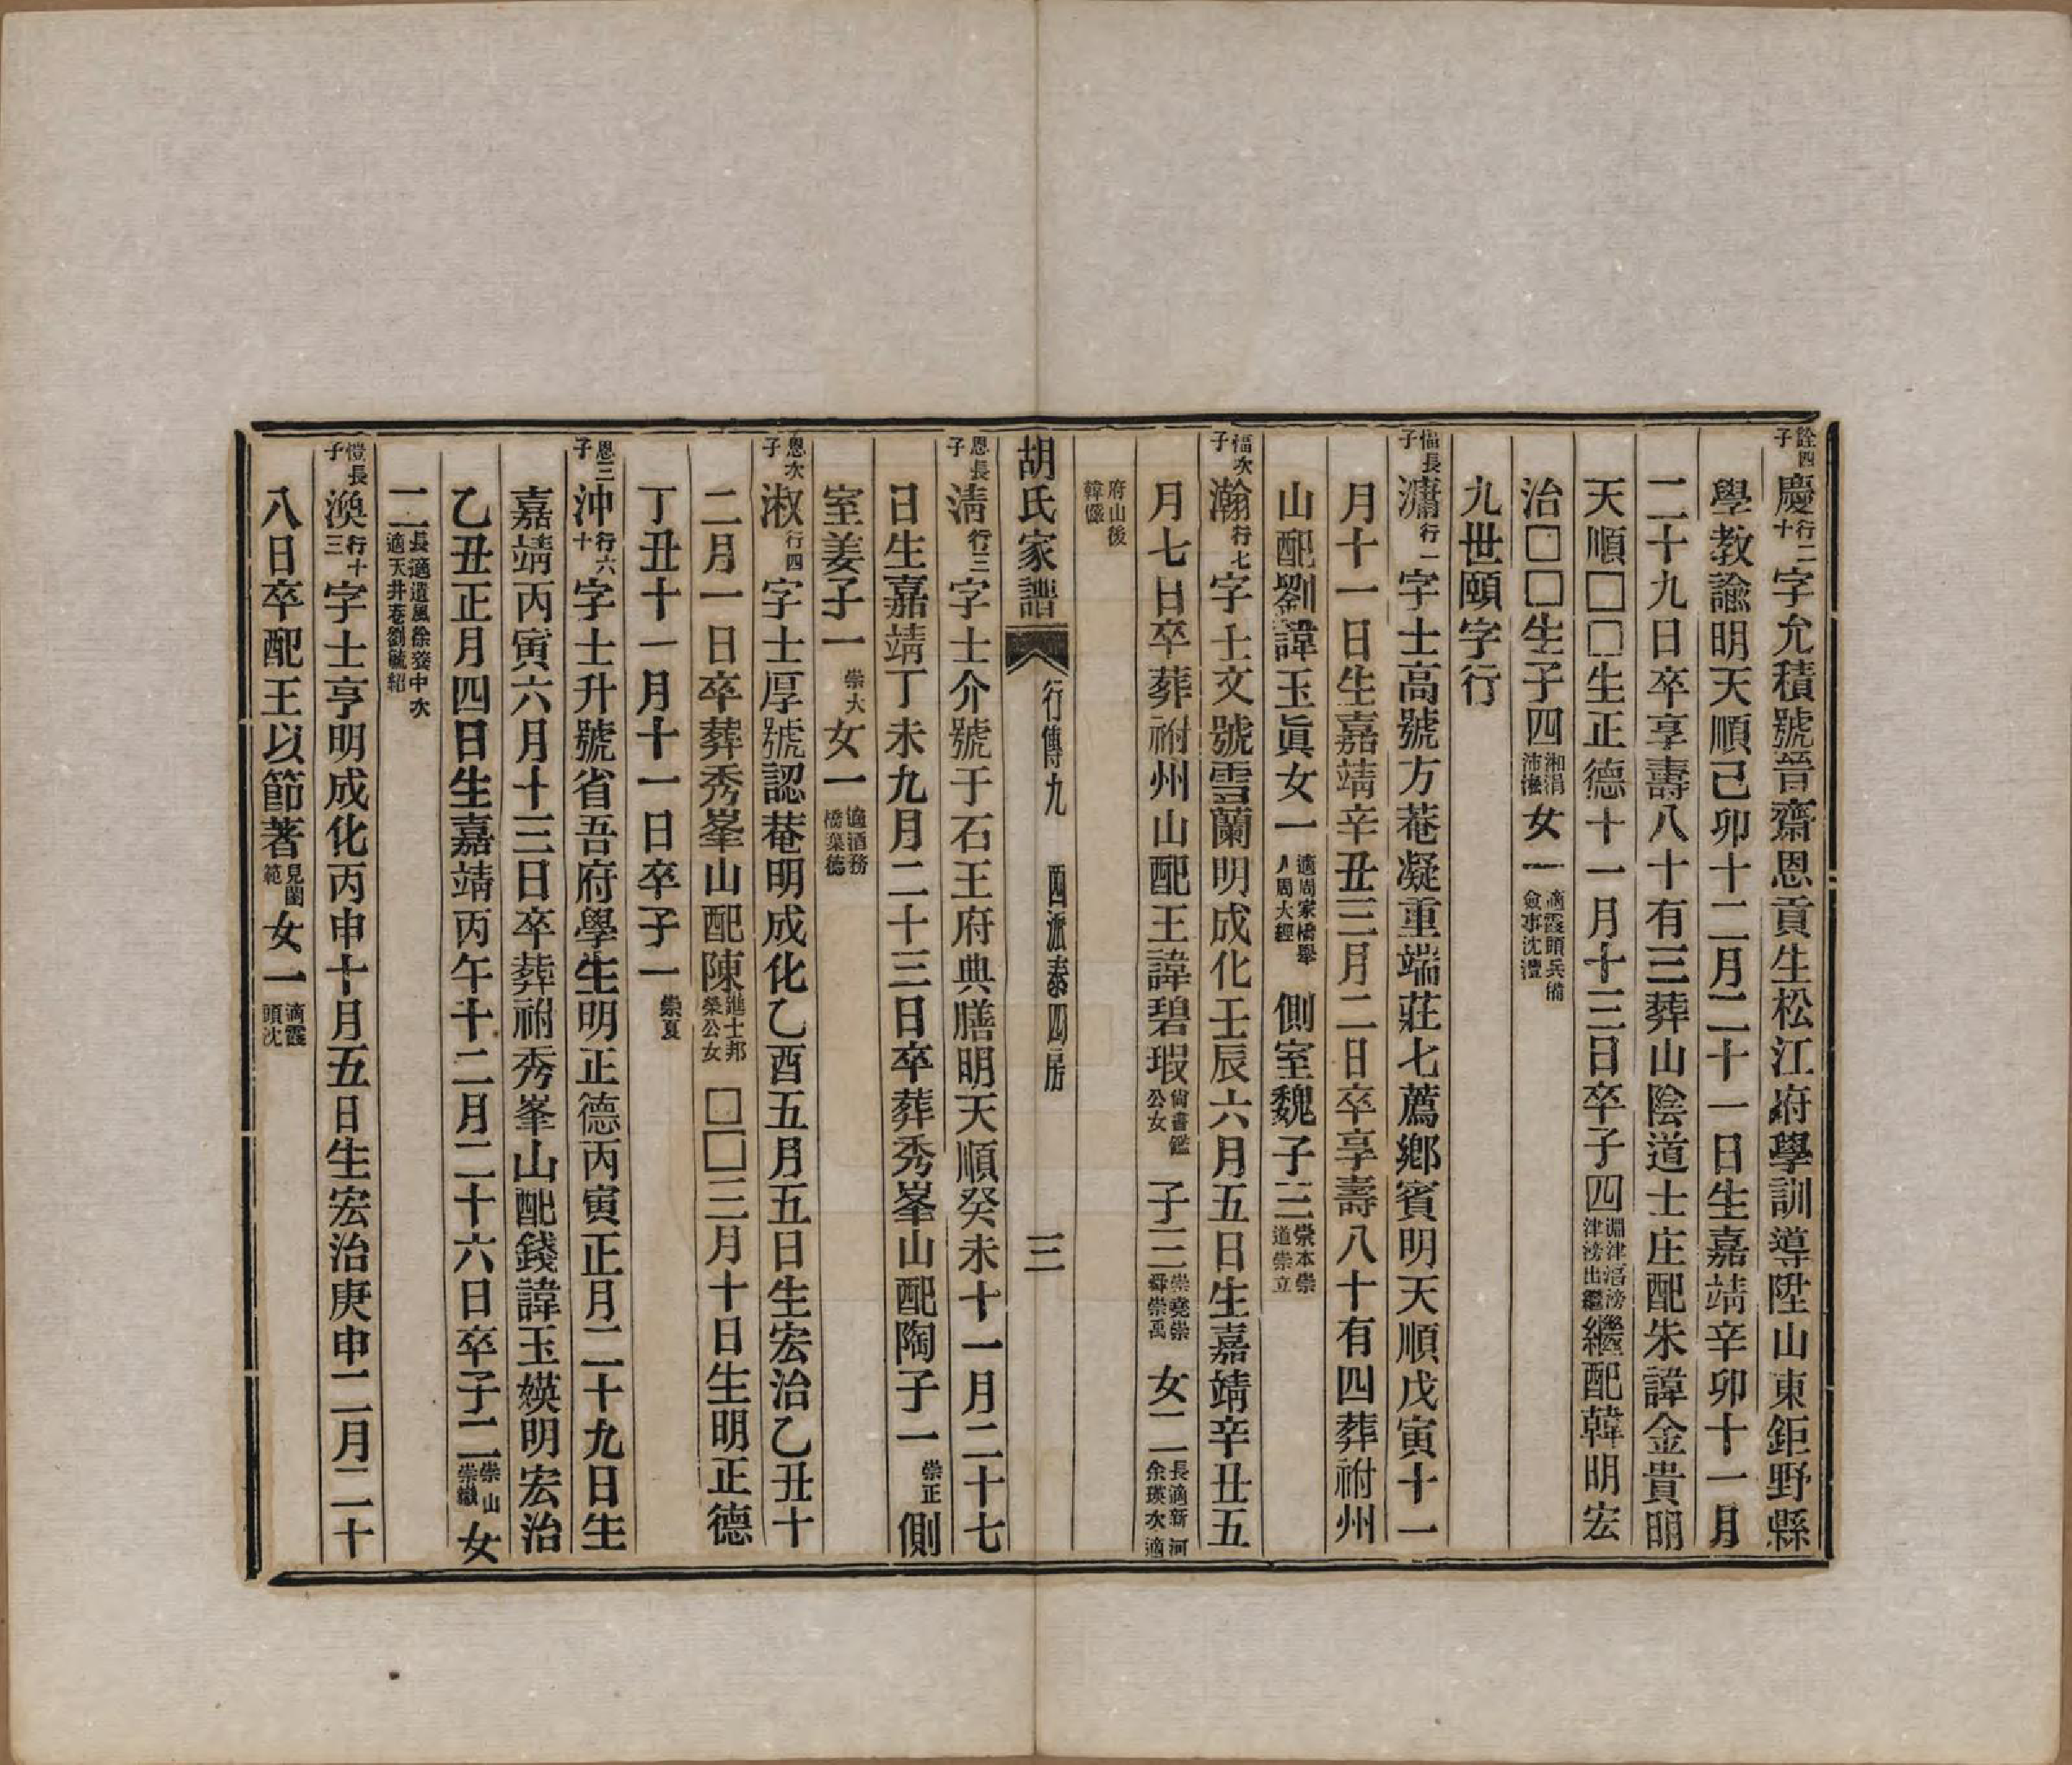 詮四子慶行二十字允積號晉齋恩貢生松江府學訓導陞山東鉅野縣
學教諭明天順己卯十二月二十一日生嘉靖辛卯十一月
二十九日卒享壽八十有三葬山陰道士庄配朱諱金貴明
天順□□生正德十一月十三日卒子四淵津滘滂津滂出繼繼配韓明宏
治□□生子四湘涓沛女一適霞頭兵備僉事沈澧
九世頤字行
愊長子潚行一字士高號方菴凝重端莊七薦鄉賓明天順戊寅十一
月十一日生嘉靖辛丑三月二日卒享壽八十有四葬祔州
山配劉諱玉眞女一適周家橋舉人周大經側室魏子三崇本崇道崇立
愊次子瀚行七字士文號雪蘭明成化壬辰六月五日生嘉靖辛丑五
月七日卒葬祔州山配王諱碧瑕尚書鑑公女子三崇堯崇舜崇禹女二長適新河余瑛次適
府山後韓
胡氏家譜 行傳九 四派泰四房 三
恩長子淸行三字士介號于石王府典膳明天順癸未十一月二十七
日生嘉靖丁未九月二十三日卒葬秀峯山配陶子一崇正側
室姜子一崇大女一適酒務橋葉德
恩次子淑行四字士厚號認菴明成化乙酉五月五日生宏治乙丑十
二月一日卒葬秀峯山配陳進士邦榮公女□□三月十日生明正德
丁丑十一月十一日卒子一崇夏
恩三子沖行六十字士升號省吾府學生明正德丙寅正月二十九日生
嘉靖丙寅六月十三日卒葬祔秀峯山配錢諱玉媖明宏治
乙丑正月四日生嘉靖丙午十二月二十六日卒子二崇山崇嶽女
二長適遺風徐夌中次適天井巷劉毓紹
憕長子渙行十三字士亨明成化丙申十月五日生宏治庚申二月二十
八日卒配王以節著見閫範女一適霞頭沈